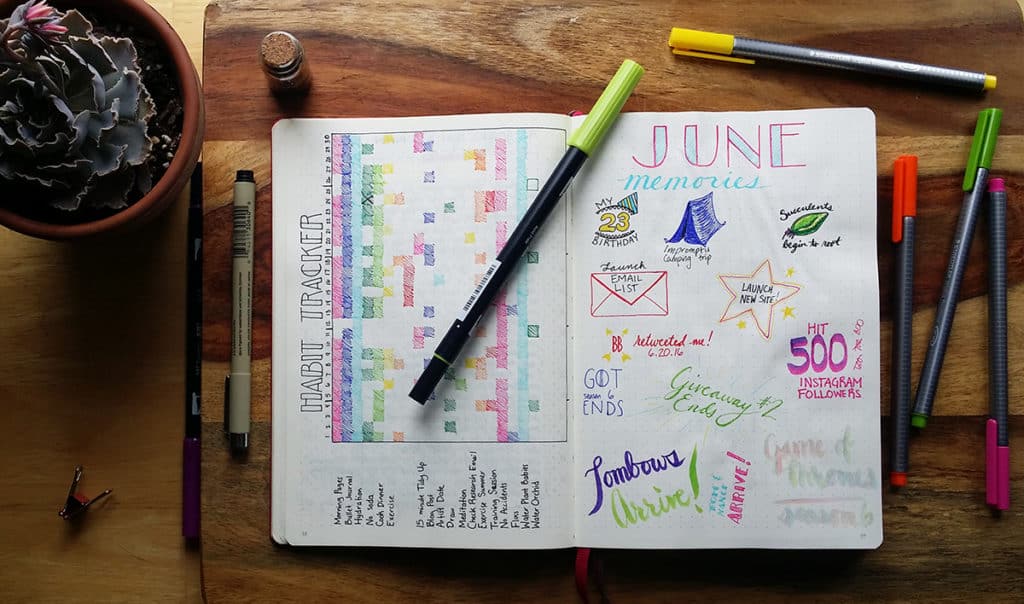 HABIT TRACKER
1 2 3 4 5 6 7 8 9 10 11 12 13 14 15 16 17 18 19 20 21 22 23 24 25 26 27 28 29 30
Morning Pages
Bullet Journal
Hydration
No Soda
Cook Dinner
Exercise
15 minute Tidy Up
Blog Post
Artist Date
Draw
Meditation
Check Research Email
Exercise Summer
Training Session
No Accidents
Floss
Water Plant Babies
Water Orchid
JUNE
memories
MY
23
BIRTHDAY
Impromptu
Camping trip
Succulents
begin to root
Launch
EMAIL
LIST
LAUNCH
NEW SITE!
BB retweeted me!
6.20.16
HIT
500
INSTAGRAM
FOLLOWERS
GOT
season 6
ENDS
Giveaway #2
Ends
Tombows
Arrive!
ARRIVE!
Game of
Thrones
season 6